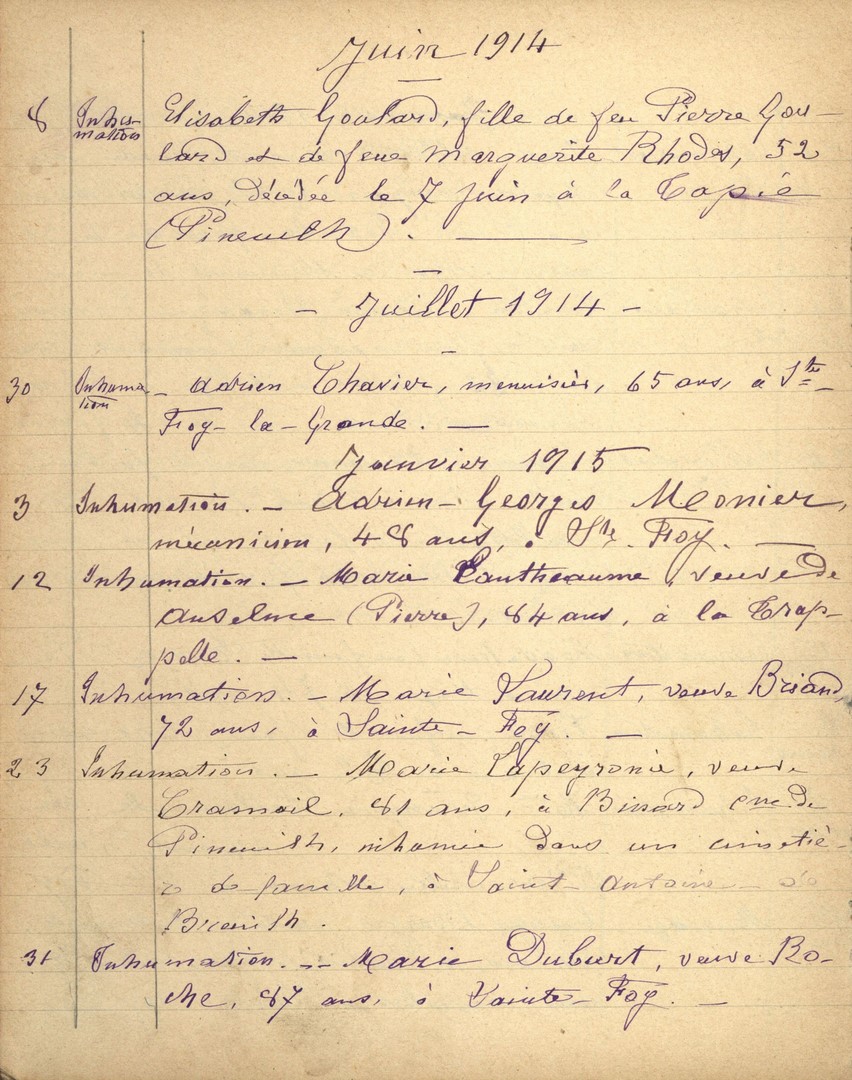 Juin 1914
8 Inhu- Elisabeth Goulard, fille de feu Pierre Gou-
mation lard et de feue Marguerite Rhodes, 52
ans, décédée le 7 juin à la Tapie
(Pineuilh).
- Juillet 1914 -
30 Inhuma - Adrien Chavier, menuisier, 65 ans, à Ste-
tion Foy-la-Grande. -
Janvier 1915
3 Inhumation. - Adrien-Georges Monier,
mécanicien, 48 ans, à Ste. Foy. -
12 Inhumation. - Marie Pantheaume, veuve de
Anselme (Pierre), 84 ans, à la Trap-
pelle. -
17 Inhumation. - Marie Laurent, veuve Briand,
72 ans, à Sainte-Foy. -
23 Inhumation. - Marie Lapeyronie, veuve
Tramail, 81 ans, à cne de
Pineuilh, inhumée dans un cimetiè-
re de famille, à Saint-Antoine-de
Breuilh.
31 Inhumation. - Marie Duburt, veuve Ro-
che, 87 ans, à Sainte-Foy. -